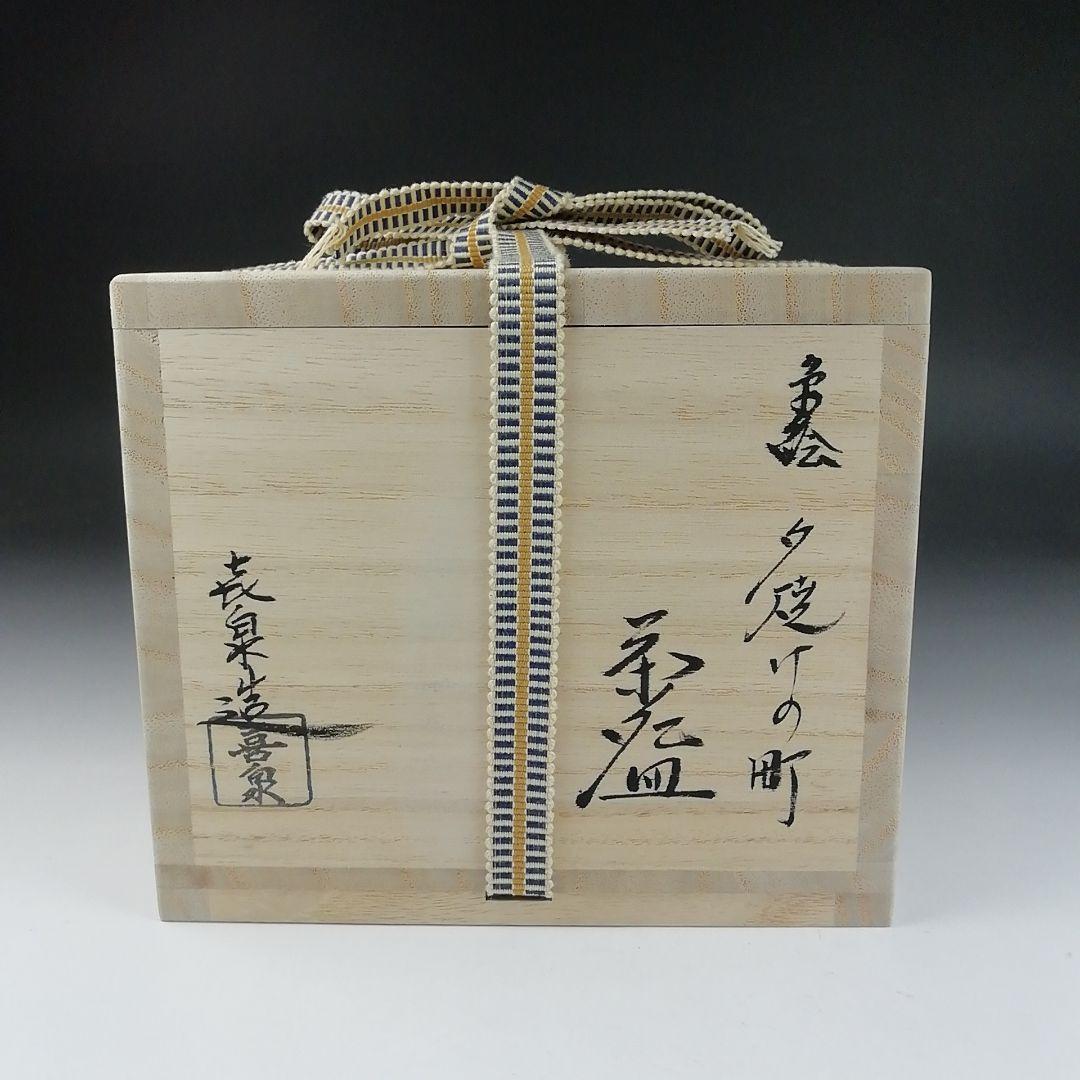 色絵 夕焼けの町
茶盌
喜泉造
喜泉